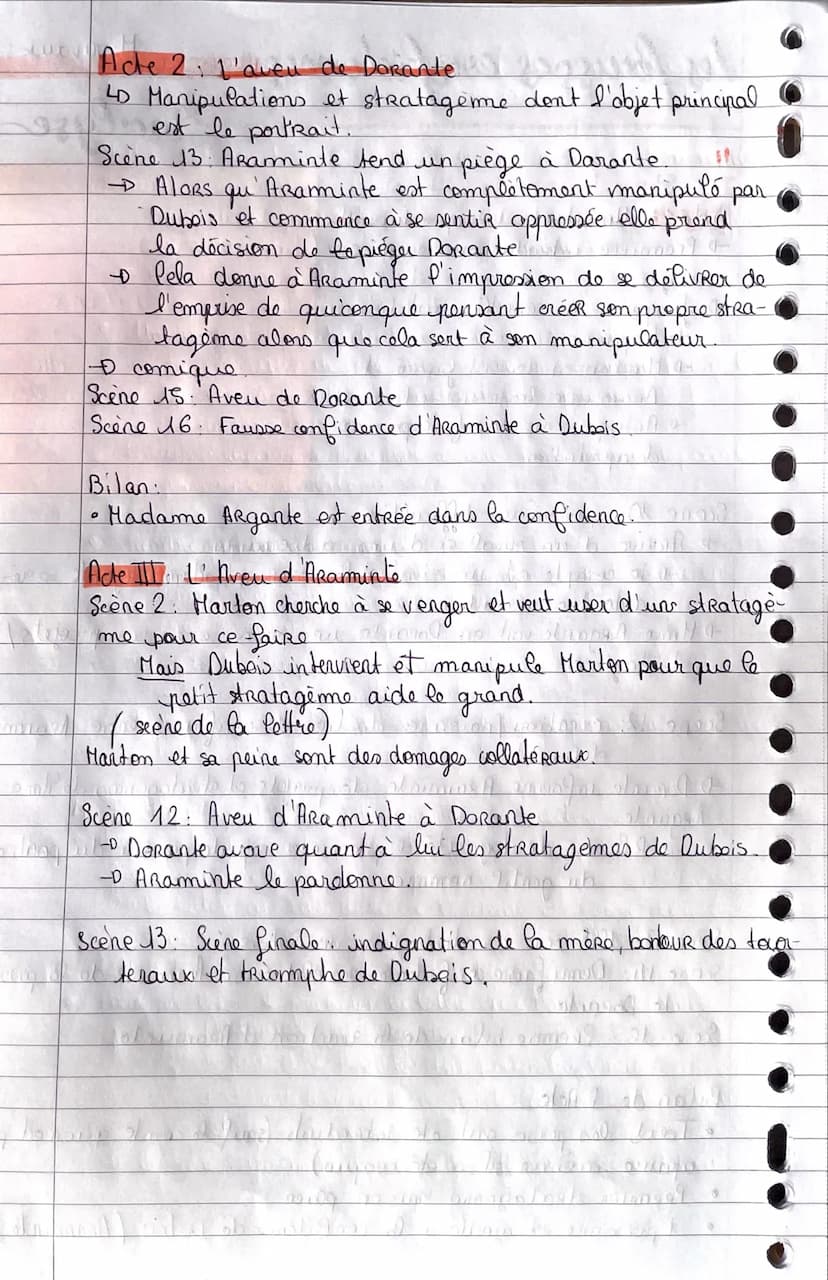 Acte 2 : L'aveu de Dorante
↳ Manipulations et stratagème dont l'objet principal
est le portrait.
Scène 13 : Araminte tend un piège à Dorante.
→ Alors qu'Araminte est complètement manipulé par
Dubois et commence à se sentir oppressée elle prend
la décision de piéger Dorante
→ Cela donne à Araminte l'impression de se délivrer de
l'emprise de quiconque pensant créer son propre stra-
tagème alors que cela sert à son manipulateur.
→ comique.
Scène 15 : Aveu de Dorante
Scène 16 : Fausse confidence d'Araminte à Dubois
Bilan :
• Madame Argante est entrée dans la confidence.
Acte III : L'Aveu d'Araminte
Scène 2 : Marton cherche à se venger et veut user d'uns stratagè-
me pour ce faire
Mais Dubois intervient et manipule Marton pour que le
petit stratagème aide le grand.
( scène de la lettre)
Marton et sa peine sont des domages collatéraux.
Scène 12 : Aveu d'Araminte à Dorante
→ Dorante avoue quant à lui les stratagèmes de Dubois.
→ Araminte le pardonne.
Scène 13 : Scène finale : indignation de la mère, des
et triomphe de Dubois.